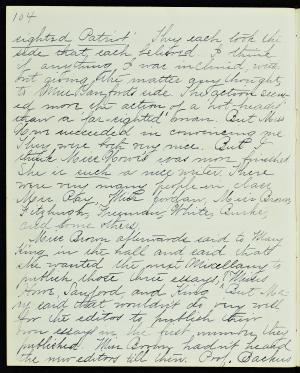 104
sighted Patriot". They each took the
side that each believed. I think
if anything, I was inclined, with
out giving the matter any thought,
to Miss Sanford's side. The action seem
ed more the action of a "hot-headed"
than a "far-sighted" man. But Miss
succeeded in convincing me
They were both very nice. But I
think Miss was more finished
She is such a nice writer. There
were very many people in class
Miss Ray, Miss Jordan, Miss Brown,
Fitzhugh, Freeman, White, Burke,
and some others.
Miss Brown afterwards said to Mary
King in the hall and said that
she wanted the next Miscellany to
publish those three essays, Misses
Sanford and King. But Ma-
ry said that wouldn't do very well
for the editors to publish their
own essays in the first number they
published. Miss Brown hadn't heard
the new editors till then. Prof. Backus